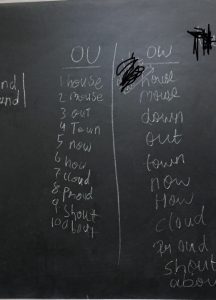 OU
1 house
2 mouse
3 out
4 Town
5 now
6 how
7 cloud
8 Proud
9 Shout
10 about
OW
house
mouse
down
out
town
now
How
cloud
shout
abou